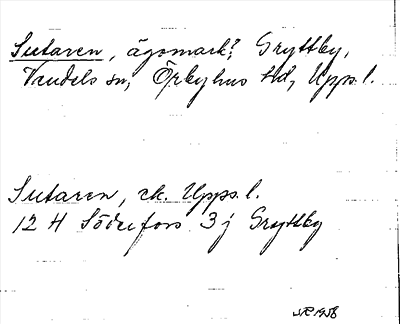 Sutaren, ägomark?, Gryttby,
Vendels sn, Örbyhus hd, Upps. l.
Sutaren, ek. Upps. l.
12 H Söderfors 3 j Gryttby
1958